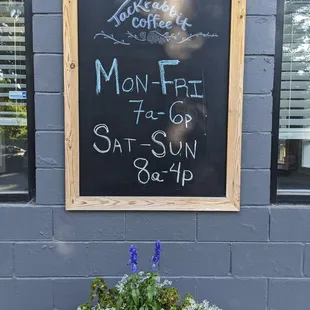 Jackrabbit
coffee
Mon-Fri
7a-6p
Sat-Sun
8a-4p